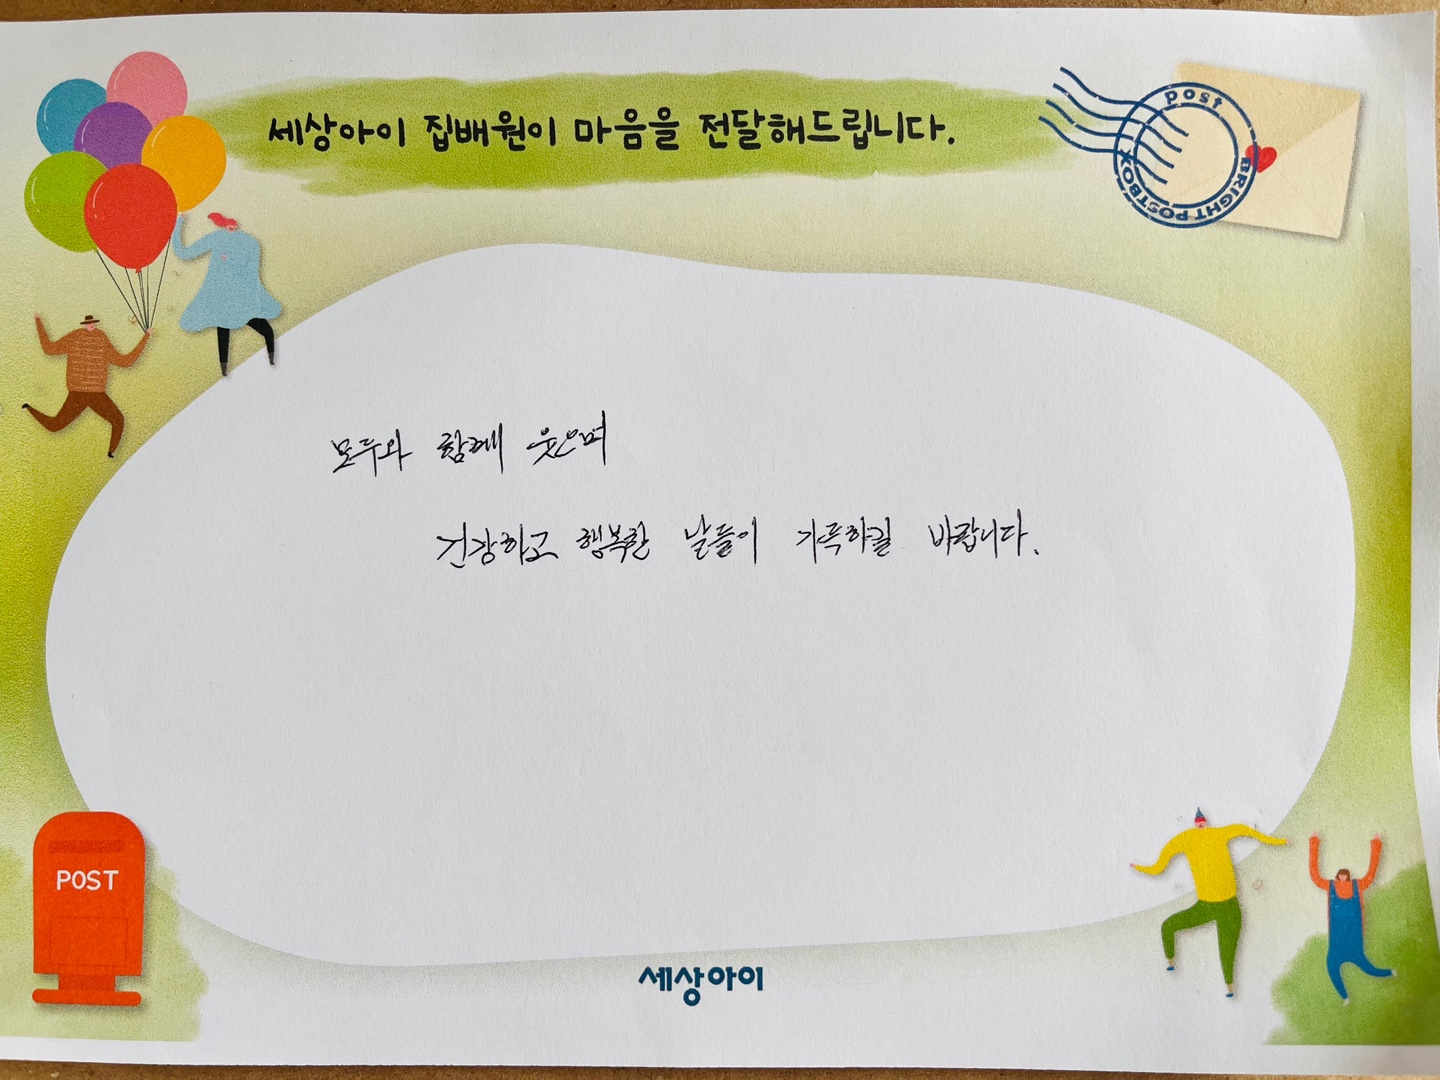 세상아이 집배원이 마음을 전달해드립니다.
post
BRIGHT POSTBOX
모두와 함께 웃으며
건강하고 행복한 날들이 가득하길 바랍니다.
POST
세상아이